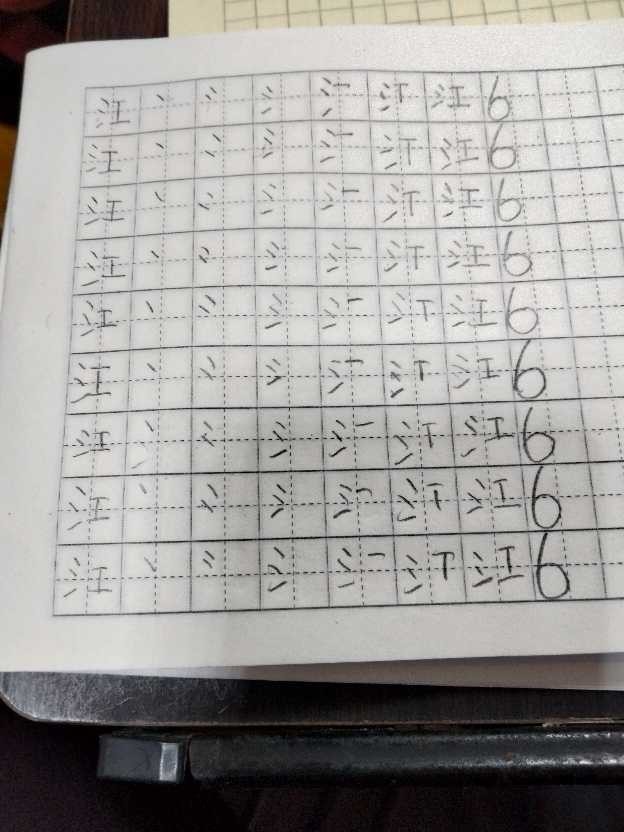 江 丶 冫 氵 氵一 氵丅 江 6
江 丶 冫 氵 氵一 氵丅 江 6
江 丶 冫 氵 氵一 氵丅 江 6
江 丶 冫 氵 氵一 氵丅 江 6
江 丶 冫 氵 氵一 氵丅 江 6
江 丶 冫 氵 氵一 氵丅 江 6
江 丶 冫 氵 氵一 氵丅 江 6
江 丶 冫 氵 氵一 氵丅 江 6
江 丶 冫 氵 氵一 氵丅 江 6